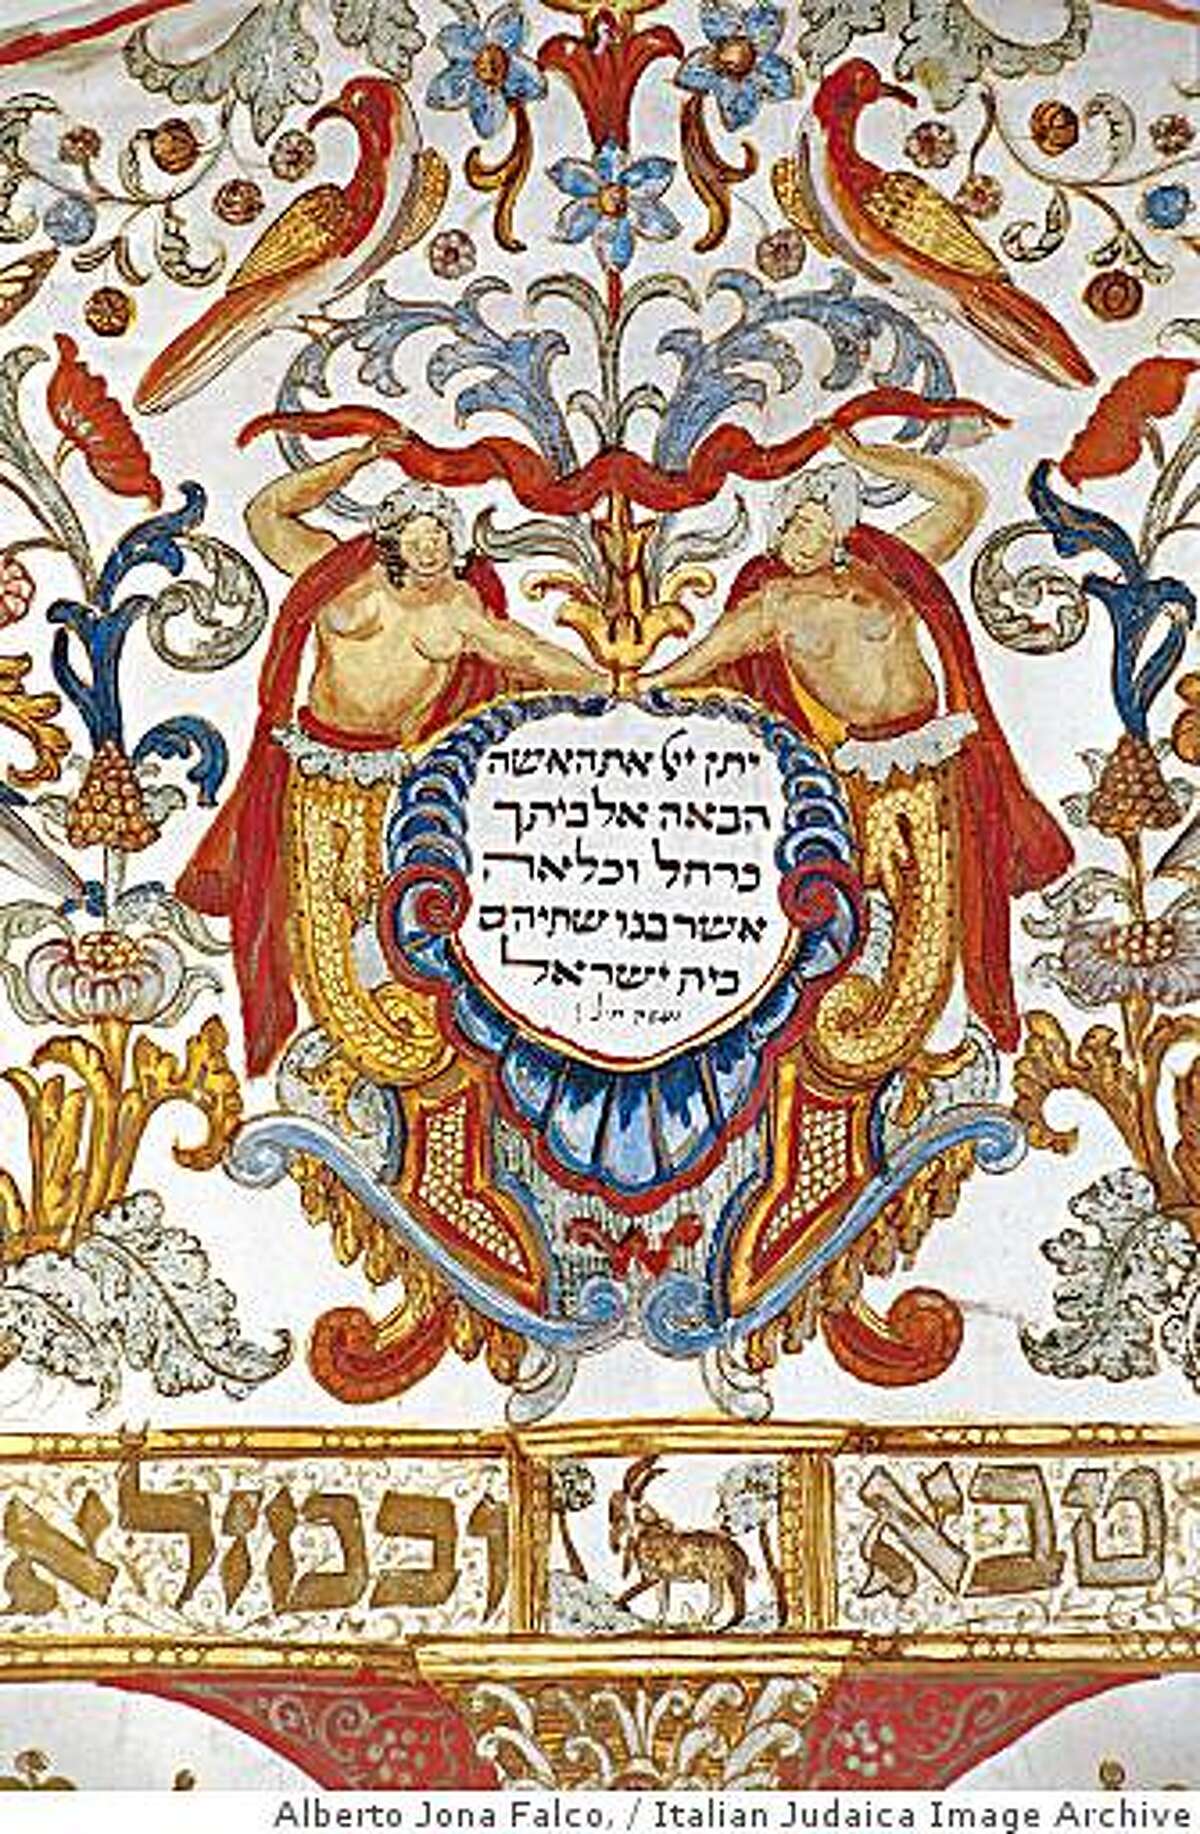 יתן יי את האשה
הבאה אל ביתך
כרחל וכלאה
אשר בנו שתיהם
בית ישראל
טבא ובמזלא
Alberto Jona Falco, / Italian Judaica Image Archive